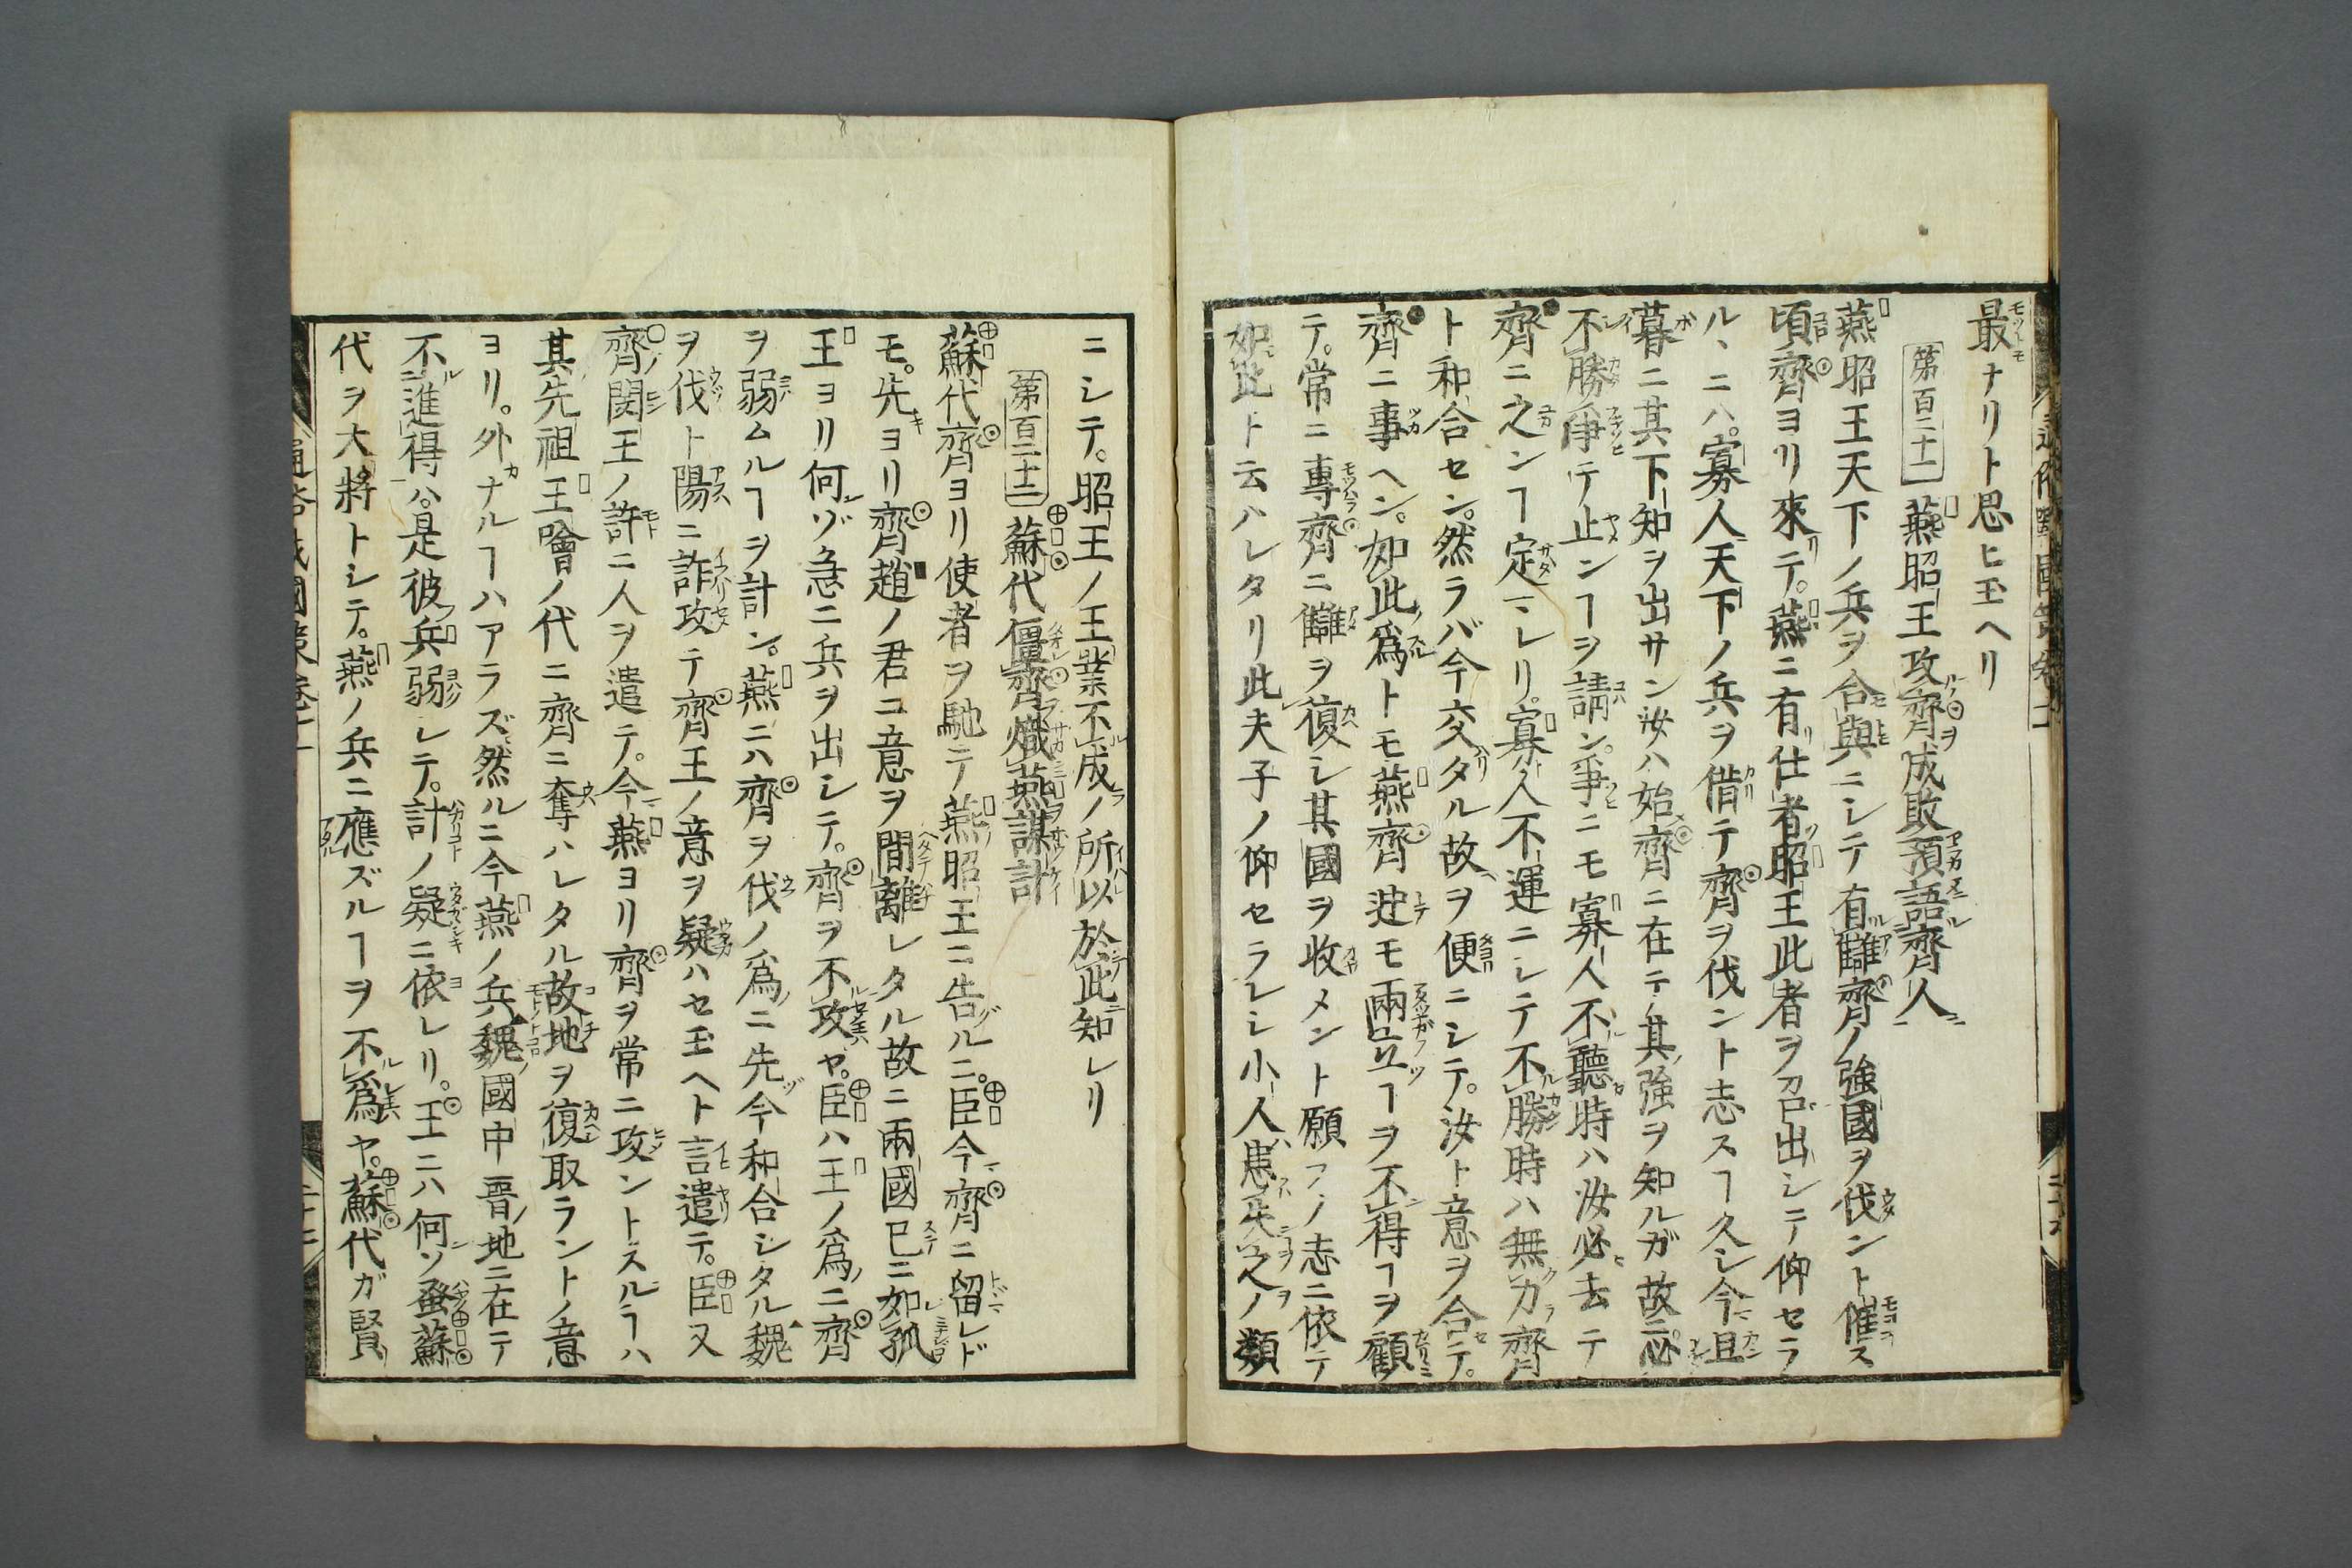 最ナリト思ヒ玉ヘリ
第百二十一 燕昭王攻齊成敗預語齊人
燕昭王天下ノ兵ヲ合與ニシテ有讎齊ノ強國ヲ伐ント催ス
頃齊ヨリ來テ。燕ニ有仕者昭王此者ヲ召出シテ仰セラ
ル、ニハ。寡人天下ノ兵ヲ借テ齊ヲ伐ント志スヿ久シ今且
暮ニ其下知ヲ出サン汝ハ始齊ニ在テ其強ヲ知ルガ故ニ必
不勝爭テ止ンヿヲ請ン。爭ニモ寡人不聽時ハ汝必去テ
齊ニ之ンヿ定レリ。寡人不運ニシテ不勝時ハ無力齊
ト和合セン。然ラバ今交タル故ヲ便ニシテ。汝ト意ヲ合テ。
齊ニ事ヘン。如此爲トモ燕齊迚モ兩立ヿヲ不得ヿヲ顧
テ。常ニ專齊ニ讎ヲ復シ其國ヲ收メント願フノ志ニ依テ
如此ト云ハレタリ此夫子ノ仰セラレシ小人患失之ノ類
ニシテ。昭王ノ王業不成ノ所以於此知レリ
第百二十二 蘇代僵齊熾燕謀計
蘇代齊ヨリ使者ヲ馳テ燕昭王ニ告ルニ。臣今齊ニ留レド
モ。先ヨリ齊趙ノ君コ意ヲ間離レタル故ニ兩國已ニ如孤
王ヨリ何ゾ急ニ兵ヲ出シテ。齊ヲ不攻ヤ。臣ハ王ノ爲ニ齊
ヲ弱ムルヿヲ計ン。燕ニハ齊ヲ伐ノ爲ニ先今和合シタル魏
ヲ伐ト陽ニ詐攻テ齊王ノ意ヲ疑ハセ玉ヘト言遣テ。臣又
齊閔王ノ許ニ人ヲ遣テ。今燕ヨリ齊ヲ常ニ攻ントスルヿハ
其先祖王噲ノ代ニ齊ニ奪ハレタル故地ヲ復取ラントノ意
ヨリ。外ナルヿハアラズ然ルニ今燕ノ兵魏國中晋地ニ在テ
不進得ハ。是彼兵弱シテ。計ノ疑ニ依レリ。王ニハ何ソ蚤蘇
代ヲ大將トシテ。燕ノ兵ニ應ズルヿヲ不爲ヤ。蘇代ガ賢